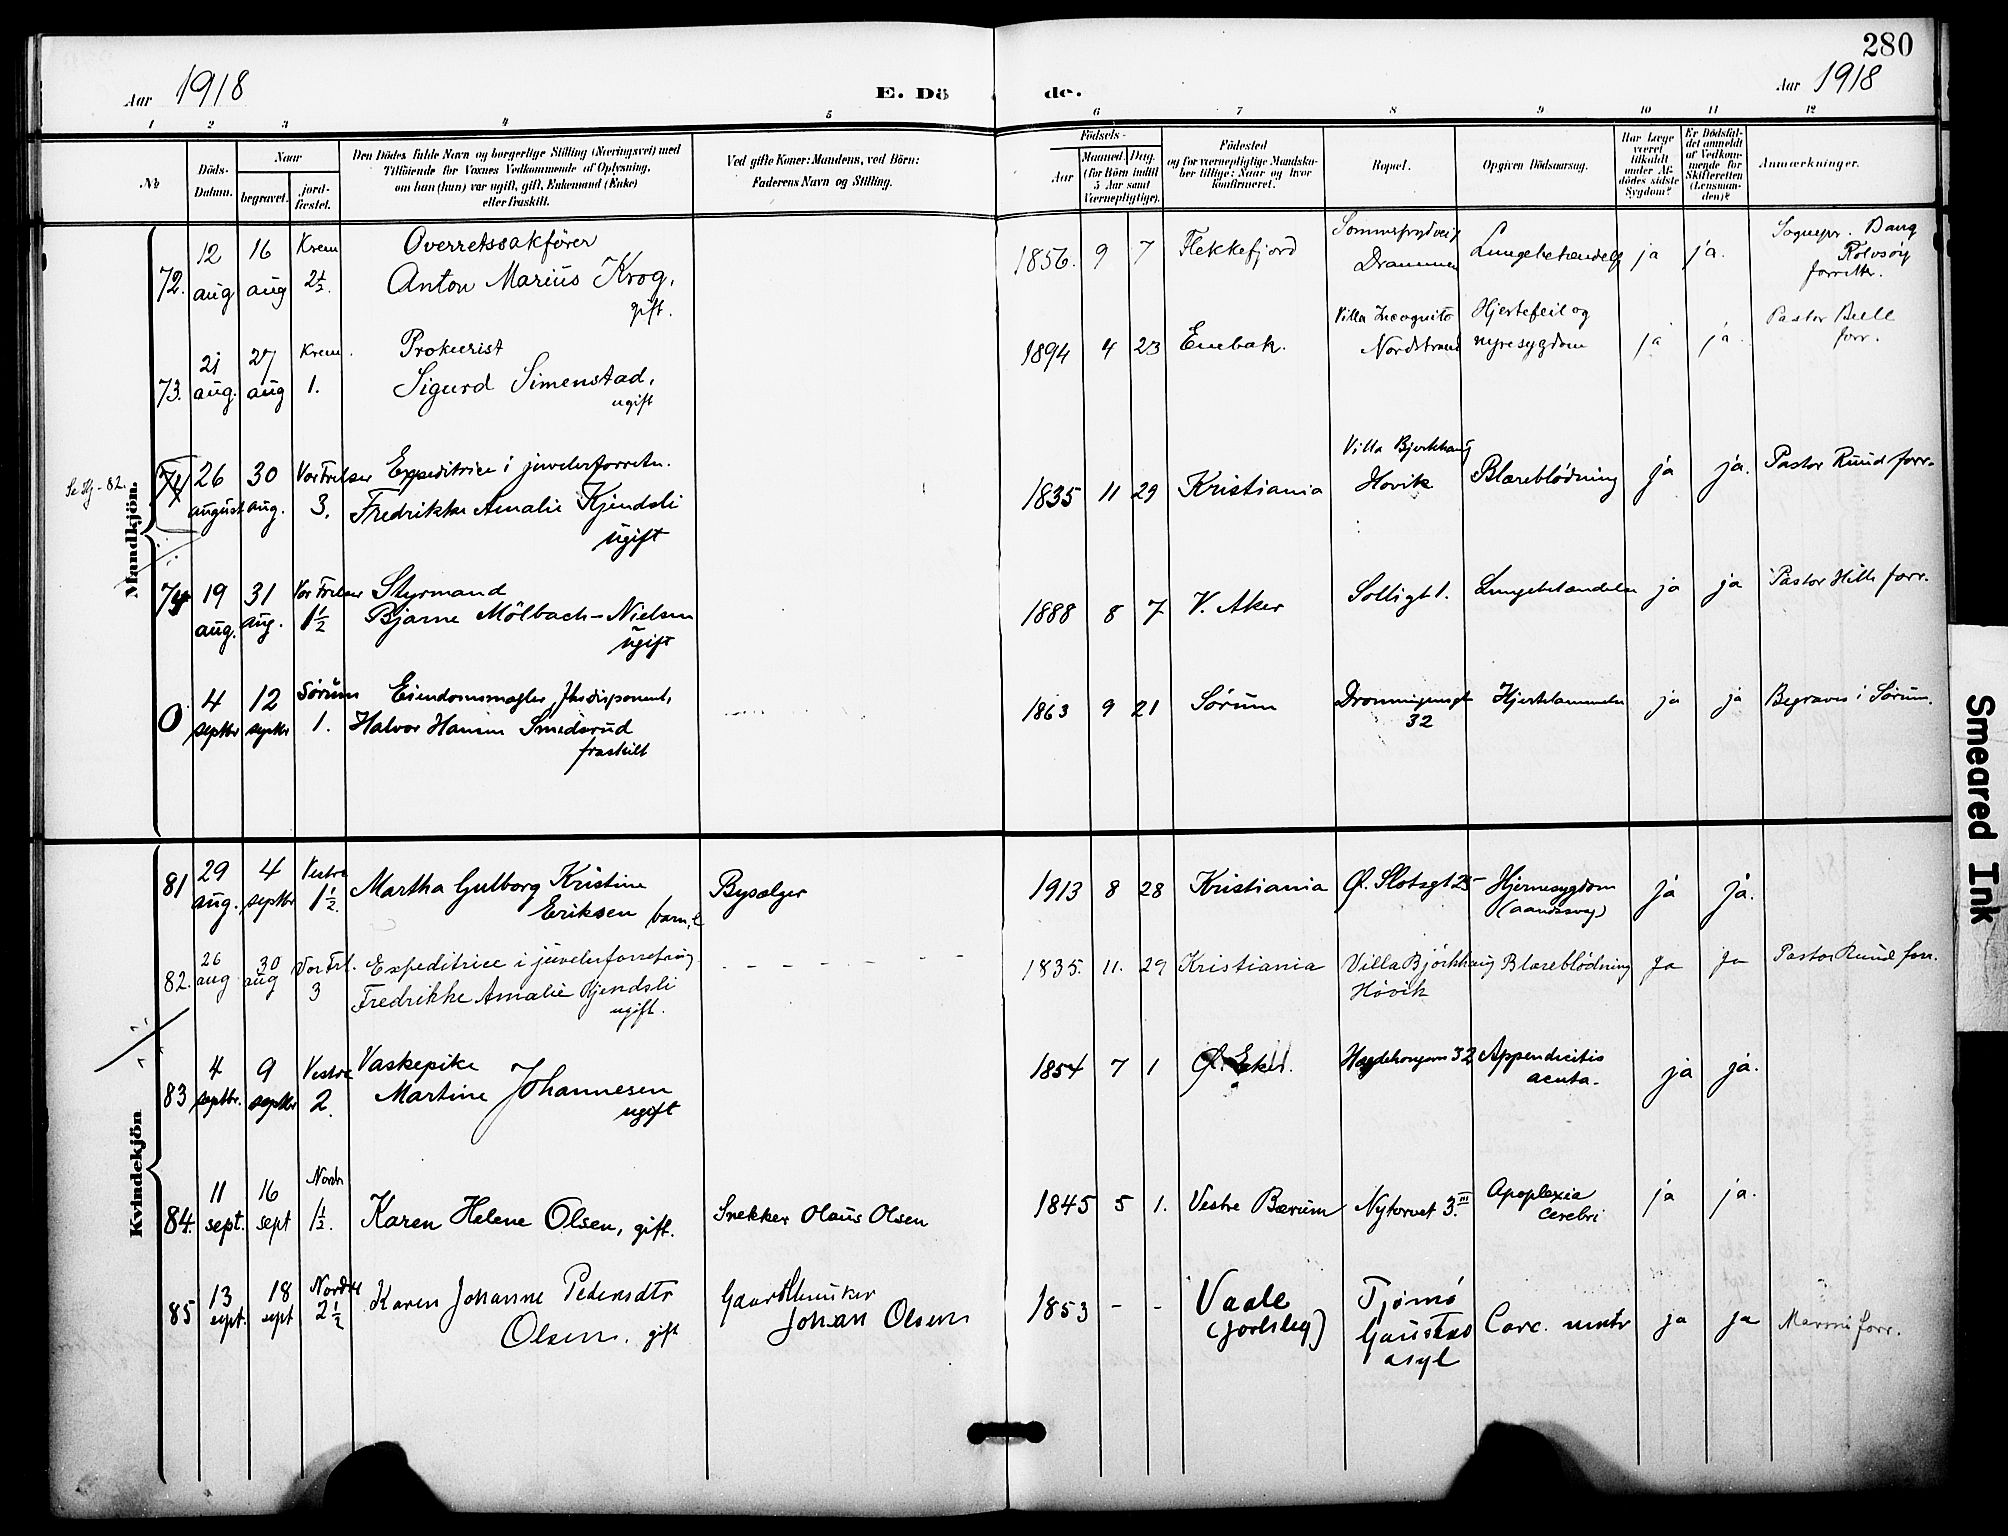 280
Aar 1918
E. Dö
de.
Aar 1918
1 2 3 4 5 6 7 8 9 10 11 12
№
Döds-
Datum.
Naar
begravet.
jord-
fæstet.
Den Dödes fulde Navn og borgerlige Stilling (Næringsvei) med
Tilföiende for Voxnes Vedkommende af Oplysning,
om han (hun) var ugift, gift, Enkemand (Enke)
eller fraskilt.
Ved gifte Koner: Mandens, ved Börn:
Faderens Navn og Stilling.
Födsels-
Aar
Maaned. Dag.
(for Börn indtil
5 Aar samt
Værnepligtige).
Födested
og for værnepligtige Mandska-
ber tillige: Naar og hvor
konfirmeret.
Bopæl.
Opgiven Dödsaarsag.
Har Læge
været
tilkaldt
under Af-
dödes sidste
Sygdom?
Er Dödsfal-
det anmeldt
af Vedkom-
mende for
Skifteretten
(Lensman-
den)?
Anmærkninger.
Mandkjön.
72. 12 aug 16 aug Krem 2½.
Overretssakförer
Anton Marius Krog,
gift.
1856. 9 7 Flekkefjord
Drammen
ja ja.
Sognepr. Bang
Rolvsöy
forrettr.
73. 21 aug. 27 aug Krem. 1.
Prokurist
Sigurd Simenstad,
ugift
1894 4 23 Enebak.
Villa Incognito
Nordstrand
Hjertefeil og
nyresygdom
ja ja.
Pastor Bull
forr.
74 26 august 30 aug. Vor Frelser 3.
Expeditrice i juvelerforretn.
Fredrikke Amalie Kjendsli
ugift
1835 11 29 Kristiania
Villa Bjerkhaug
Hovik
Blæreblödning
ja ja.
Pastor Ruud forr.
74 19 aug. 31 aug. Vor Frelser 1½
Styrmand
Bjarne Mölbach-Nielsen
ugift
1888 8 7 V. Aker
Solligt 1.
Lungebetændelse
ja ja
Pastor Hille forr.
0 4 septbr 12 septbr Sørum 1.
Eiendomsmægler,
Halvor Hansen Smedsrud
fraskilt
1863 9 21 Sørum
Dronningensgt
32
ja ja
Begraves i Sørum.
Kvindekjön
81 29 aug. 4 septbr Vestre 1½.
Martha Gulborg Kristine
Eriksen barn,
Bysælger
1913 8 28 Kristiania
Ø. Slotsgt 25
Hjernesygdom
ja ja.
82. 26 aug 30 aug Vor Frl. 3
Expeditrice i juvelerforretning
Fredrikke Amalie Kjendsli
ugift.
1835. 11. 29 Kristiania
Villa Bjørkhaug
Hövik
Blæreblödning
ja ja
Pastor Ruud forr.
83 4 septbr. 9 septbr Vestre 2.
Vaskepike
Martine Johannesen
ugift
1854 7 1 Ø. Eker.
Hegdehaugsvn 32
Appendicitis
acuta.
ja ja.
84. 11 sept. 16 sept Nordre 1½.
Karen Helene Olsen, gift.
Snekker Olaus Olsen
1845 5 1. Vestre Bærum
Nytorvet 3 III
Apoplexia
cerebri
ja ja.
85 13 sept. 18 sept Nordre 2½
Karen Johanne Pedersdtr
Olsen. gift
Gaardbruker
Johan Olsen
1853 - - Vaale
(Jarlsbg)
Tjömö
Gaustad
asyl
Carc. ventr
ja ja
forr.
Smeared Ink